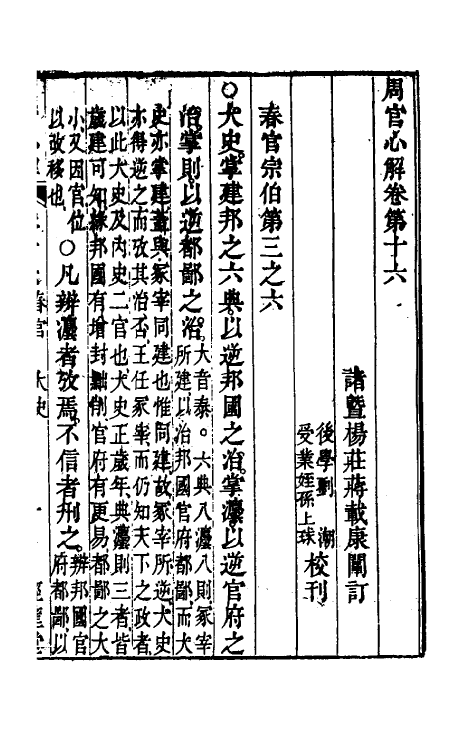 周官心解卷第十六
諸暨楊莊蔣載康闡訂
後學劉潮
受業姪孫上珠
校刊
春官宗伯第三之六
○大史掌建邦之六典以逆邦國之治掌灋以逆官府之
治掌則以逆都鄙之治
大音泰。六典八灋八則冢宰
所建以治邦國官府都鄙而大
史亦掌建蓋與冢宰同建也惟同建故冢宰所逆大史
亦得逆之而攷其治否王任冢宰而仍知天下之政者
以此大史及內史二官也大史正歲年典灋則三者皆
歲建可知緣邦國有增封黜削官府有更易都鄙之大
小又因官位
以改移也
○凡辨灋者攷焉不信者刑之
辨邦國官
府都鄙以
春官
大史